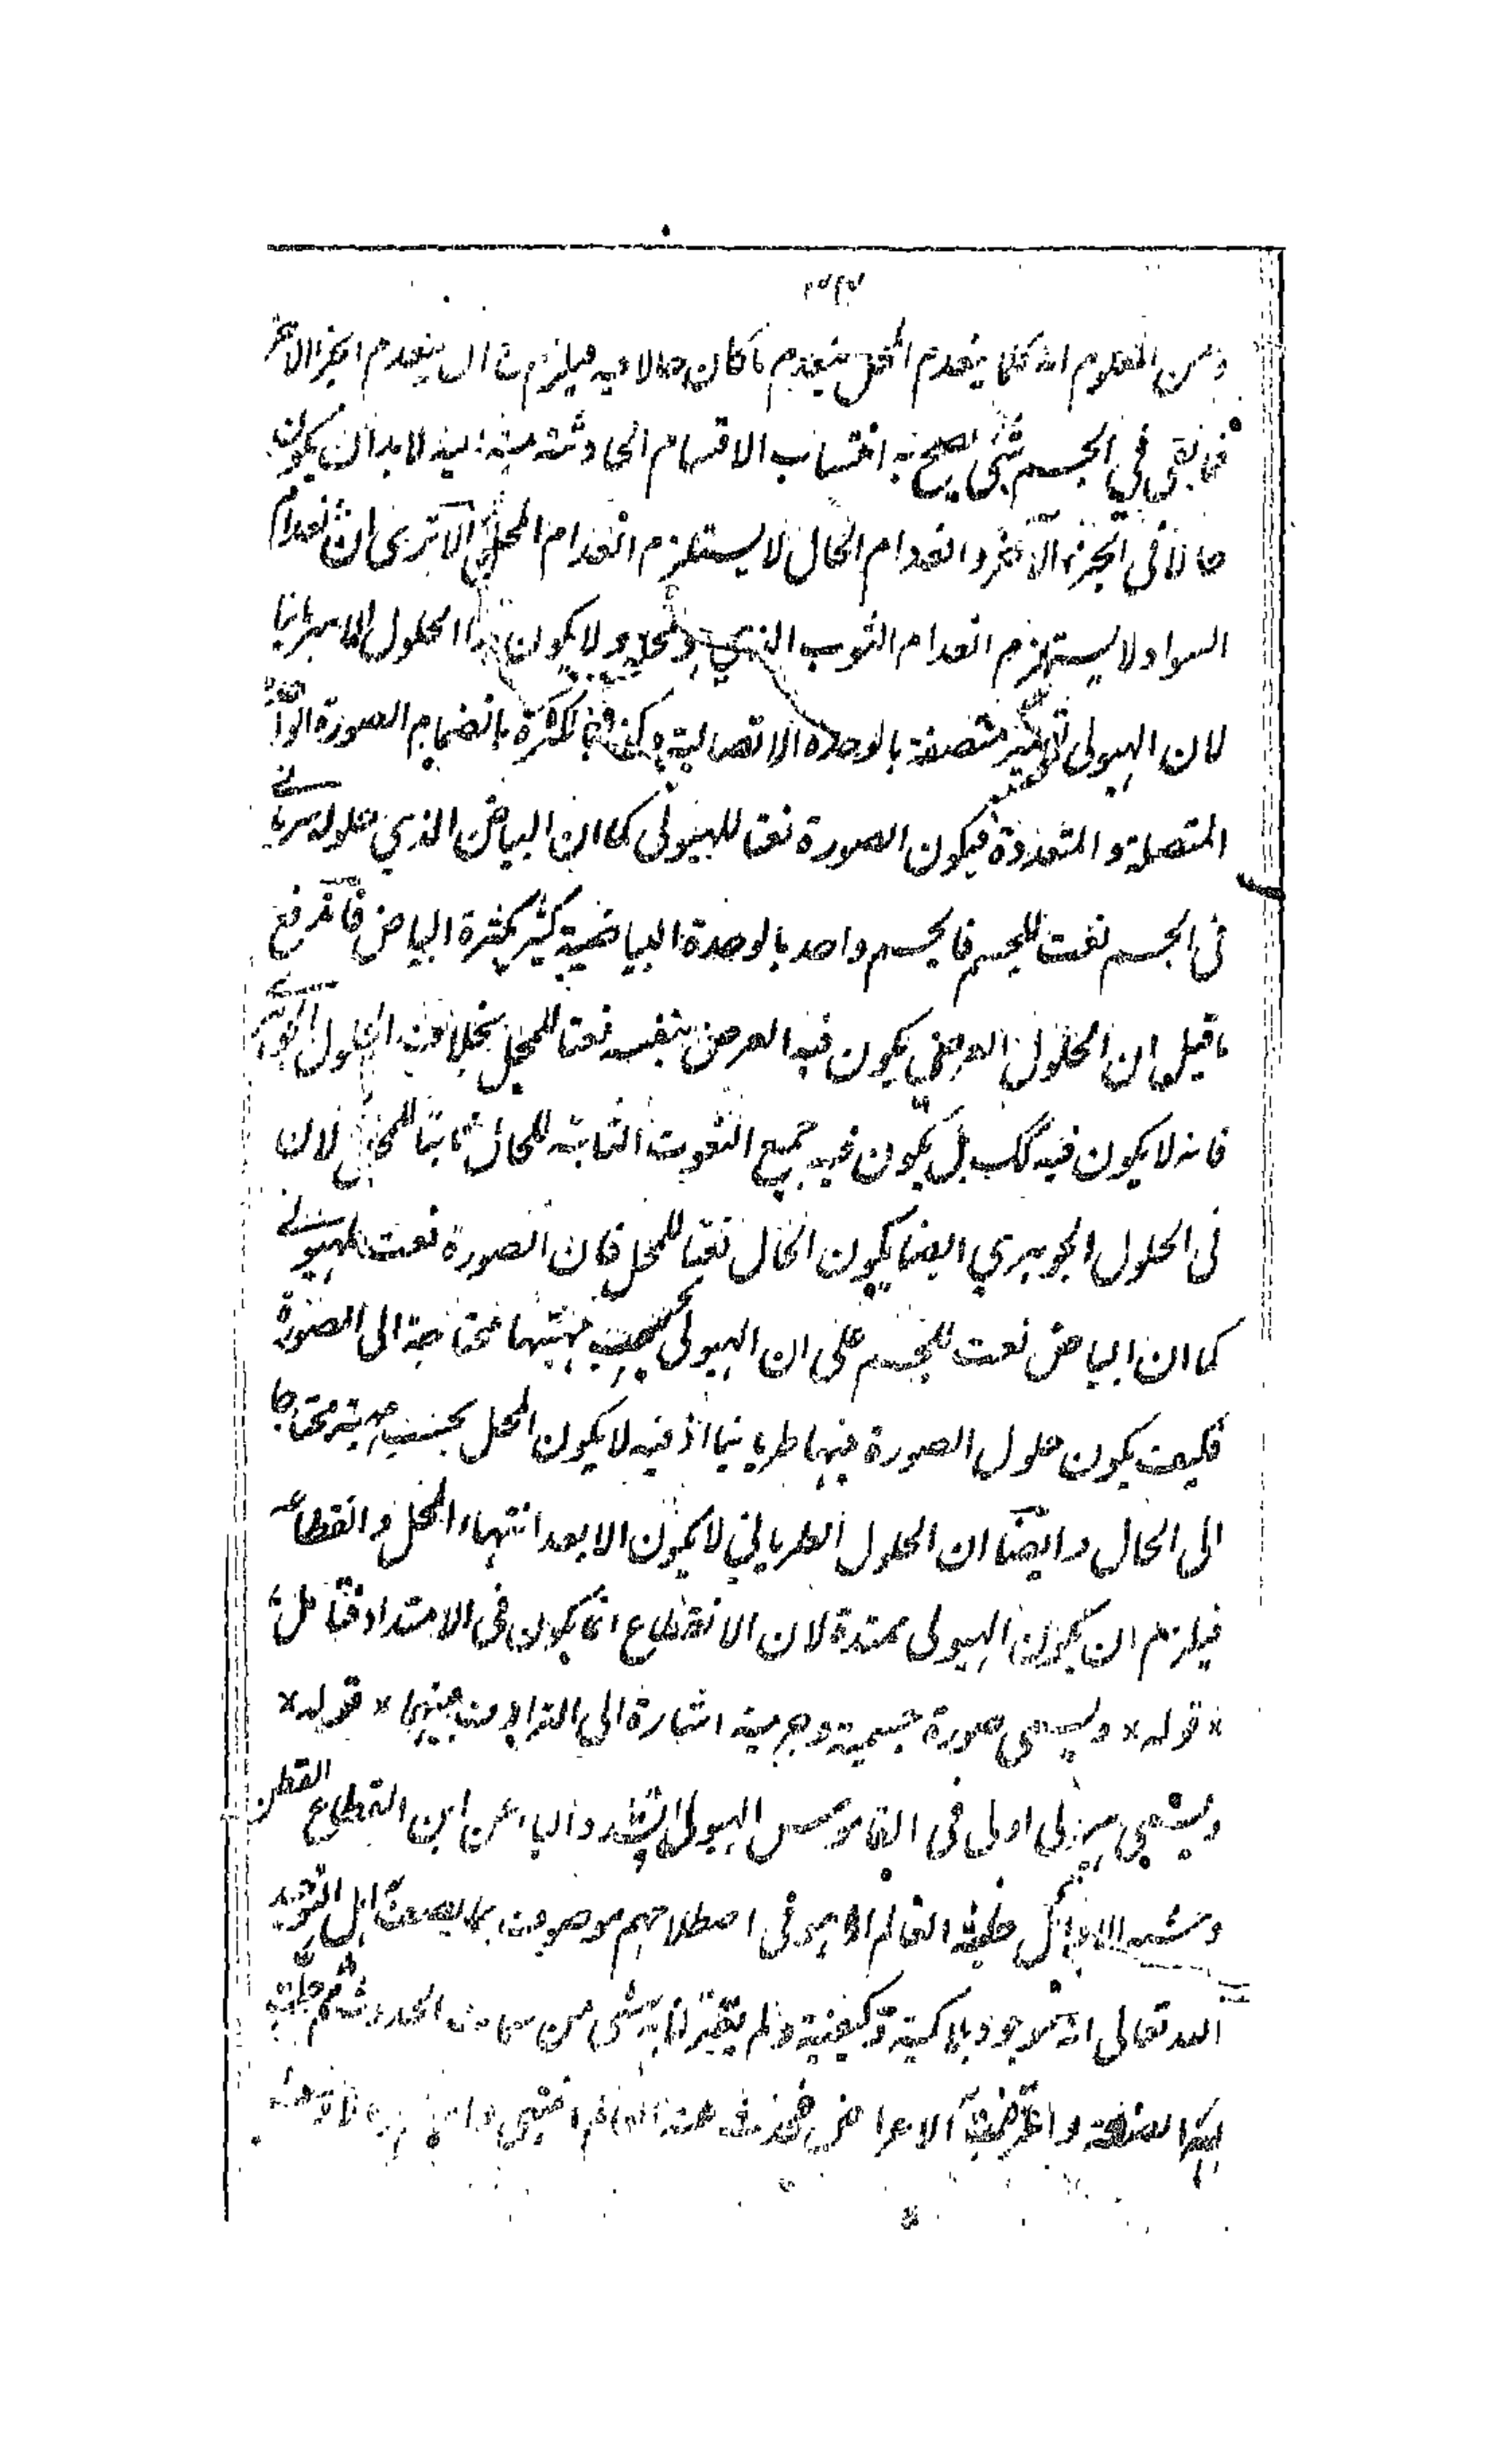 ومن المعلوم انه كلما ينعدم المحل ينعدم ما كان حالا فيه فيلزم ح ان ينعدم الجزء الآخر
فما بقى فى الجسم شئ يصح به انتساب الاقسام الحادثة منه اليه لابد ان يكون
حالا فى الجزء الآخر وانعدام الحال لا يستلزم انعدام المحل الا ترى ان انعدام
السواد لا يستلزم انعدام الثوب الذي هو محله ولا يكون هذا الحلول الا سريانيا
لان الهيولى تصير متصفة بالوحدة الاتصالية وكذا بالكثرة بانضمام الصورة الواحدة
المتصلة والمتعددة فيكون الصورة نعتا للهيولى كما ان البياض الذي حلوله سرياني
فى الجسم نعت للجسم فالجسم واحد بالوحدة البياضية كثير بكثرة البياض فاندفع
ما قيل ان الحلول العرضي يكون فيه العرض بنفسه نعتا للمحل بخلاف الحلول الجوهري
فانه لا يكون فيه كك بل يكون فيه جميع النعوت الثابتة للحال ثابتا للمحل لان
فى الحلول الجوهري ايضا يكون الحال نعتا للمحل فان الصورة نعت للهيولى
كما ان البياض نعت للجسم على ان الهيولى بحسب مهيتها محتاجة الى الصورة
فكيف يكون حلول الصورة فيها طريانيا اذ فيه لا يكون المحل بحسب مهيته محتاجا
الى الحال وايضا ان الحلول الطرياني لا يكون الا بعد انتهاء المحل وانقطاعه
فيلزم ان يكون الهيولى ممتدة لان الانقطاع انما يكون فى الامتداد فتأمل
* قوله * ويسمى صورة جسمية وجرمية اشارة الى الترادف بينهما * قوله *
ويسمى هيولى اولى فى القاموس الهيولى وتشدد الياء عن ابن القطاع القطن
وشبه الاوائل طينة العالم به او هو فى اصطلاحهم موصوف بما يصف اهل التوحيد
الله تعالى انه موجود بلا كمية وكيفية ولم يقترن به شئ من سمات الحدوث ثم حلت
به الصنعة واعترضت به الاعراض فحدث منه العالم انتهى